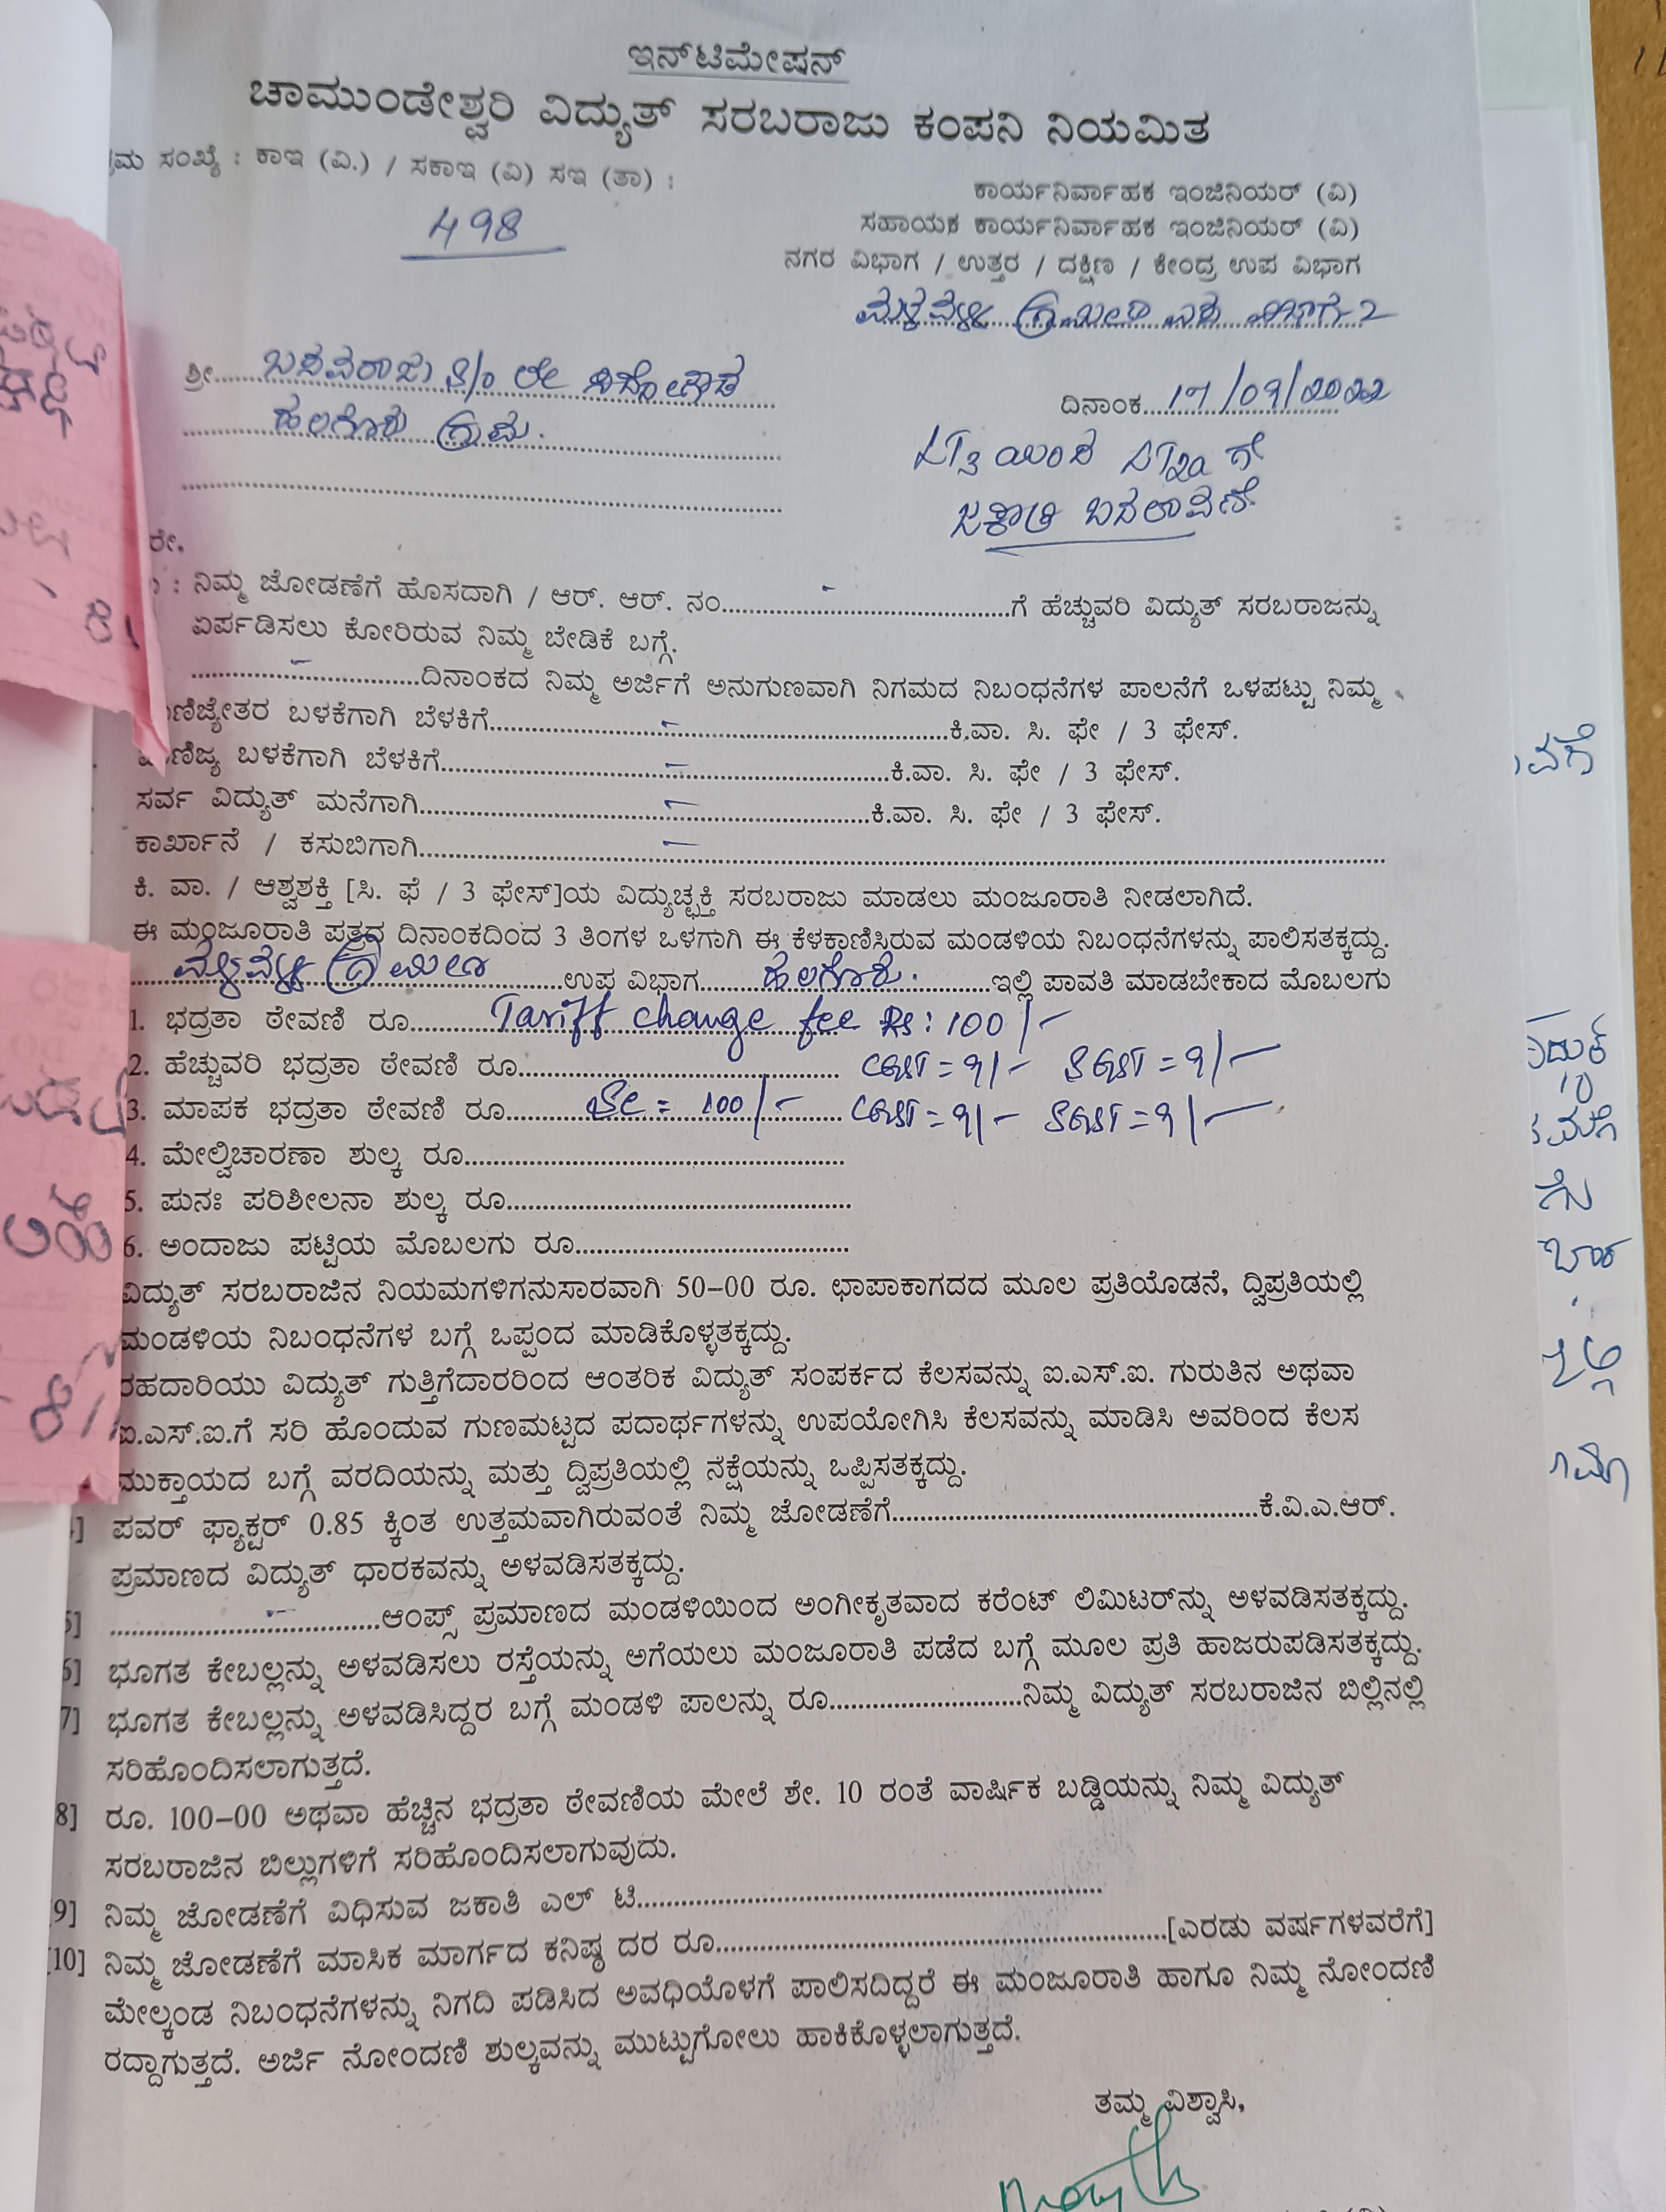 ಇನ್‌ಟಿಮೇಷನ್
ಚಾಮುಂಡೇಶ್ವರಿ ವಿದ್ಯುತ್ ಸರಬರಾಜು ಕಂಪನಿ ನಿಯಮಿತ
ಸಂಖ್ಯೆ : ಕಾಇ (ವಿ.) / ಸಕಾಇ (ವಿ) ಸಇ (ತಾ) :
498
ಕಾರ್ಯನಿರ್ವಾಹಕ ಇಂಜಿನಿಯರ್ (ವಿ)
ಸಹಾಯಕ ಕಾರ್ಯನಿರ್ವಾಹಕ ಇಂಜಿನಿಯರ್ (ವಿ)
ನಗರ ವಿಭಾಗ / ಉತ್ತರ / ದಕ್ಷಿಣ / ಕೇಂದ್ರ ಉಪ ವಿಭಾಗ
ಶ್ರೀ..... ಬಸವರಾಜು S/o ಲೇ
ಹಲಗೂರು ಗ್ರಾಮ.
ದಿನಾಂಕ.... 17/09/2022
LT3 ಯಿಂದ LT2a ಗೆ
ಜಕಾತಿ ಬದಲಾವಣೆ
ರೇ.
: ನಿಮ್ಮ ಜೋಡಣೆಗೆ ಹೊಸದಾಗಿ / ಆರ್. ಆರ್. ನಂ..........ಗೆ ಹೆಚ್ಚುವರಿ ವಿದ್ಯುತ್ ಸರಬರಾಜನ್ನು
ಏರ್ಪಡಿಸಲು ಕೋರಿರುವ ನಿಮ್ಮ ಬೇಡಿಕೆ ಬಗ್ಗೆ.
..........ದಿನಾಂಕದ ನಿಮ್ಮ ಅರ್ಜಿಗೆ ಅನುಗುಣವಾಗಿ ನಿಗಮದ ನಿಬಂಧನೆಗಳ ಪಾಲನೆಗೆ ಒಳಪಟ್ಟು ನಿಮ್ಮ
ಣಿಜ್ಯೇತರ ಬಳಕೆಗಾಗಿ ಬೆಳಕಿಗೆ..........ಕಿ.ವಾ. ಸಿ. ಫೇ / 3 ಫೇಸ್.
ಣಿಜ್ಯ ಬಳಕೆಗಾಗಿ ಬೆಳಕಿಗೆ..........ಕಿ.ವಾ. ಸಿ. ಫೇ / 3 ಫೇಸ್.
ಸರ್ವ ವಿದ್ಯುತ್ ಮನೆಗಾಗಿ..........ಕಿ.ವಾ. ಸಿ. ಫೇ / 3 ಫೇಸ್.
ಕಾರ್ಖಾನೆ / ಕಸುಬಿಗಾಗಿ..........
ಕಿ. ವಾ. / ಆಶ್ವಶಕ್ತಿ [ಸಿ. ಫೆ / 3 ಫೇಸ್]ಯ ವಿದ್ಯುಚ್ಛಕ್ತಿ ಸರಬರಾಜು ಮಾಡಲು ಮಂಜೂರಾತಿ ನೀಡಲಾಗಿದೆ.
ಈ ಮಂಜೂರಾತಿ ಪತ್ರದ ದಿನಾಂಕದಿಂದ 3 ತಿಂಗಳ ಒಳಗಾಗಿ ಈ ಕೆಳಕಾಣಿಸಿರುವ ಮಂಡಳಿಯ ನಿಬಂಧನೆಗಳನ್ನು ಪಾಲಿಸತಕ್ಕದ್ದು.
..........ಉಪ ವಿಭಾಗ.....ಹಲಗೂರು.....ಇಲ್ಲಿ ಪಾವತಿ ಮಾಡಬೇಕಾದ ಮೊಬಲಗು
1. ಭದ್ರತಾ ಠೇವಣಿ ರೂ..... Tariff change fee Rs: 100/-
2. ಹೆಚ್ಚುವರಿ ಭದ್ರತಾ ಠೇವಣಿ ರೂ.......... CGST = 9/- SGST = 9/-
3. ಮಾಪಕ ಭದ್ರತಾ ಠೇವಣಿ ರೂ..... Sc = 100/- CGST = 9/- SGST = 9/-
4. ಮೇಲ್ವಿಚಾರಣಾ ಶುಲ್ಕ ರೂ..........
5. ಪುನಃ ಪರಿಶೀಲನಾ ಶುಲ್ಕ ರೂ..........
6. ಅಂದಾಜು ಪಟ್ಟಿಯ ಮೊಬಲಗು ರೂ..........
ವಿದ್ಯುತ್ ಸರಬರಾಜಿನ ನಿಯಮಗಳಿಗನುಸಾರವಾಗಿ 50-00 ರೂ. ಛಾಪಾಕಾಗದದ ಮೂಲ ಪ್ರತಿಯೊಡನೆ, ದ್ವಿಪ್ರತಿಯಲ್ಲಿ
ಮಂಡಳಿಯ ನಿಬಂಧನೆಗಳ ಬಗ್ಗೆ ಒಪ್ಪಂದ ಮಾಡಿಕೊಳ್ಳತಕ್ಕದ್ದು.
ರಹದಾರಿಯು ವಿದ್ಯುತ್ ಗುತ್ತಿಗೆದಾರರಿಂದ ಆಂತರಿಕ ವಿದ್ಯುತ್ ಸಂಪರ್ಕದ ಕೆಲಸವನ್ನು ಐ.ಎಸ್.ಐ. ಗುರುತಿನ ಅಥವಾ
ಐ.ಎಸ್.ಐ.ಗೆ ಸರಿ ಹೊಂದುವ ಗುಣಮಟ್ಟದ ಪದಾರ್ಥಗಳನ್ನು ಉಪಯೋಗಿಸಿ ಕೆಲಸವನ್ನು ಮಾಡಿಸಿ ಅವರಿಂದ ಕೆಲಸ
ಮುಕ್ತಾಯದ ಬಗ್ಗೆ ವರದಿಯನ್ನು ಮತ್ತು ದ್ವಿಪ್ರತಿಯಲ್ಲಿ ನಕ್ಷೆಯನ್ನು ಒಪ್ಪಿಸತಕ್ಕದ್ದು.
] ಪವರ್ ಫ್ಯಾಕ್ಟರ್ 0.85 ಕ್ಕಿಂತ ಉತ್ತಮವಾಗಿರುವಂತೆ ನಿಮ್ಮ ಜೋಡಣೆಗೆ..........ಕೆ.ವಿ.ಎ.ಆರ್.
ಪ್ರಮಾಣದ ವಿದ್ಯುತ್ ಧಾರಕವನ್ನು ಅಳವಡಿಸತಕ್ಕದ್ದು.
5] ..........ಆಂಪ್ಸ್ ಪ್ರಮಾಣದ ಮಂಡಳಿಯಿಂದ ಅಂಗೀಕೃತವಾದ ಕರೆಂಟ್ ಲಿಮಿಟರ್‌ನ್ನು ಅಳವಡಿಸತಕ್ಕದ್ದು.
6] ಭೂಗತ ಕೇಬಲ್ಲನ್ನು ಅಳವಡಿಸಲು ರಸ್ತೆಯನ್ನು ಅಗೆಯಲು ಮಂಜೂರಾತಿ ಪಡೆದ ಬಗ್ಗೆ ಮೂಲ ಪ್ರತಿ ಹಾಜರುಪಡಿಸತಕ್ಕದ್ದು.
7] ಭೂಗತ ಕೇಬಲ್ಲನ್ನು ಅಳವಡಿಸಿದ್ದರ ಬಗ್ಗೆ ಮಂಡಳಿ ಪಾಲನ್ನು ರೂ..........ನಿಮ್ಮ ವಿದ್ಯುತ್ ಸರಬರಾಜಿನ ಬಿಲ್ಲಿನಲ್ಲಿ
ಸರಿಹೊಂದಿಸಲಾಗುತ್ತದೆ.
8] ರೂ. 100-00 ಅಥವಾ ಹೆಚ್ಚಿನ ಭದ್ರತಾ ಠೇವಣಿಯ ಮೇಲೆ ಶೇ. 10 ರಂತೆ ವಾರ್ಷಿಕ ಬಡ್ಡಿಯನ್ನು ನಿಮ್ಮ ವಿದ್ಯುತ್
ಸರಬರಾಜಿನ ಬಿಲ್ಲುಗಳಿಗೆ ಸರಿಹೊಂದಿಸಲಾಗುವುದು.
[9] ನಿಮ್ಮ ಜೋಡಣೆಗೆ ವಿಧಿಸುವ ಜಕಾತಿ ಎಲ್ ಟಿ..........
[10] ನಿಮ್ಮ ಜೋಡಣೆಗೆ ಮಾಸಿಕ ಮಾರ್ಗದ ಕನಿಷ್ಠ ದರ ರೂ..........[ಎರಡು ವರ್ಷಗಳವರೆಗೆ]
ಮೇಲ್ಕಂಡ ನಿಬಂಧನೆಗಳನ್ನು ನಿಗದಿ ಪಡಿಸಿದ ಅವಧಿಯೊಳಗೆ ಪಾಲಿಸದಿದ್ದರೆ ಈ ಮಂಜೂರಾತಿ ಹಾಗೂ ನಿಮ್ಮ ನೋಂದಣಿ
ರದ್ದಾಗುತ್ತದೆ. ಅರ್ಜಿ ನೋಂದಣಿ ಶುಲ್ಕವನ್ನು ಮುಟ್ಟುಗೋಲು ಹಾಕಿಕೊಳ್ಳಲಾಗುತ್ತದೆ.
ತಮ್ಮ ವಿಶ್ವಾಸಿ,